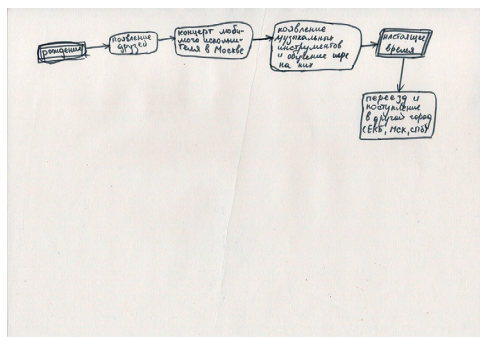 рождение
появление
друзей
концерт люби-
мого исполни-
теля в Москве
появление
музыкальных
инструментов
и обучение игре
на них
настоящее
время
переезд и
поступление
в другой город
(ЕКБ, МСК, СПБ)